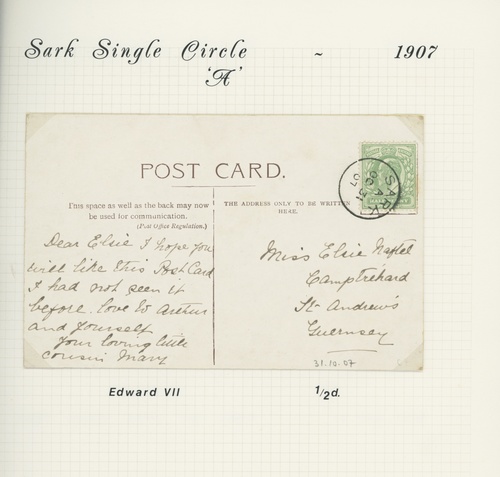 Sark Single Circle ~ 1907
'A'
POST CARD.
This space as well as the back may now
be used for communication.
(Post Office Regulation.)
THE ADDRESS ONLY TO BE WRITTEN
HERE.
SARK
A
OC 31
07
Dear Elsie I hope you
will like this Post Card
I had not seen it
before. love to Arthur
and yourself
your loving little
cousin Mary
Miss Elsie
St Andrew's
Guernsey
31.10.07
Edward VII 1/2d.